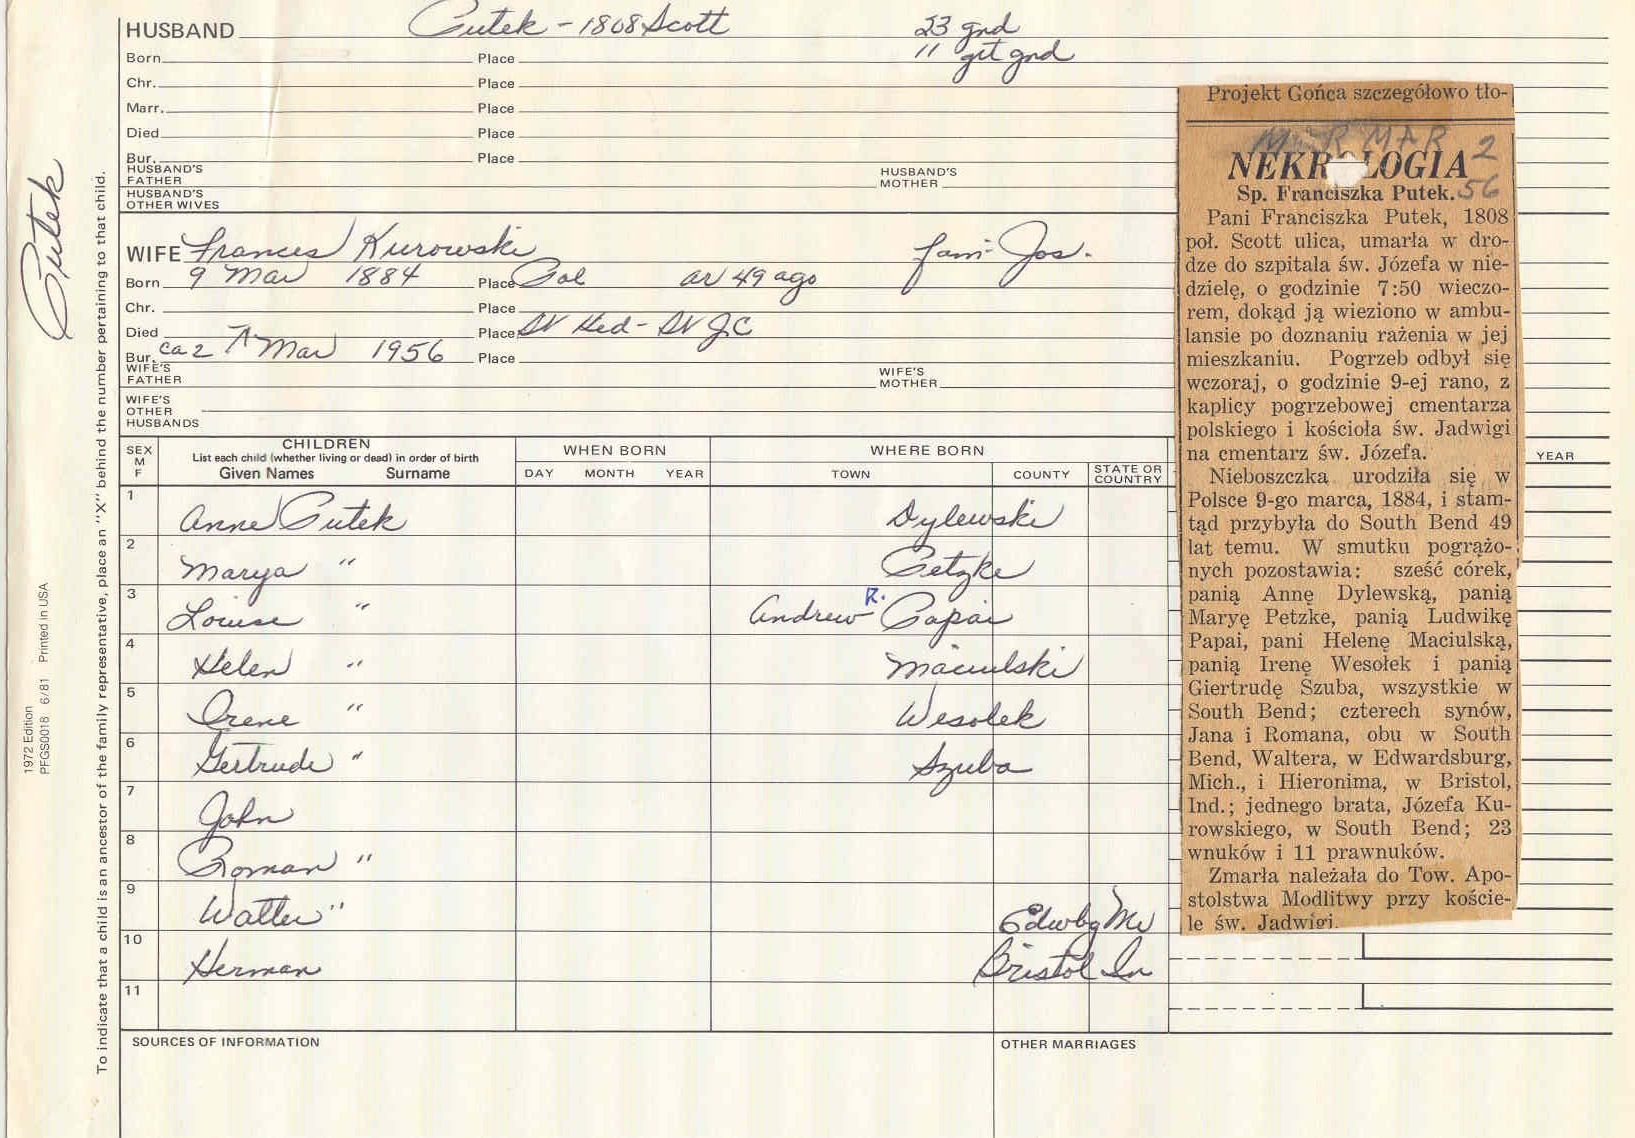 HUSBAND Putek - 1808 Scott 23 gnd
11 grt gnd
Born Place
Chr. Place
Marr. Place
Died Place
Bur. Place
HUSBAND'S FATHER HUSBAND'S MOTHER
HUSBAND'S OTHER WIVES
WIFE Frances Kurowski fam- Jos.
Born 9 Mar 1884 Place Pol ar 49 ago
Chr. Place
Died Place St Hed - St J C
Bur. ca 2 Mar 1956 Place
WIFE'S FATHER WIFE'S MOTHER
WIFE'S OTHER HUSBANDS
SEX M F
CHILDREN
List each child (whether living or dead) in order of birth
Given Names Surname
WHEN BORN
DAY MONTH YEAR
WHERE BORN
TOWN COUNTY STATE OR COUNTRY
YEAR
1 Anne Putek Dylewski
2 Marya " Petzke
3 Louise " Andrew R. Papai
4 Helen " Maciulski
5 Irene " Wesolek
6 Gertrude " Szuba
7 John
8 Roman "
9 Walter " Edwbg Mi
10 Herman Bristol In
11
SOURCES OF INFORMATION OTHER MARRIAGES
Putek
To indicate that a child is an ancestor of the family representative, place an "X" behind the number pertaining to that child.
1972 Edition
PFGS0018 6/81 Printed in USA
Projekt Gońca szczegółowo tło-
MAR 2
56
NEKROLOGIA
Sp. Franciszka Putek.
Pani Franciszka Putek, 1808
poł. Scott ulica, umarła w dro-
dze do szpitala św. Józefa w nie-
dzielę, o godzinie 7:50 wieczo-
rem, dokąd ją wieziono w ambu-
lansie po doznaniu rażenia w jej
mieszkaniu. Pogrzeb odbył się
wczoraj, o godzinie 9-ej rano, z
kaplicy pogrzebowej cmentarza
polskiego i kościoła św. Jadwigi
na cmentarz św. Józefa.
Nieboszczka urodziła się w
Polsce 9-go marca, 1884, i stam-
tąd przybyła do South Bend 49
lat temu. W smutku pogrążo-
nych pozostawia: sześć córek,
panią Annę Dylewską, panią
Maryę Petzke, panią Ludwikę
Papai, pani Helenę Maciulską,
panią Irenę Wesołek i panią
Giertrudę Szuba, wszystkie w
South Bend; czterech synów,
Jana i Romana, obu w South
Bend, Waltera, w Edwardsburg,
Mich., i Hieronima, w Bristol,
Ind.; jednego brata, Józefa Ku-
rowskiego, w South Bend; 23
wnuków i 11 prawnuków.
Zmarła należała do Tow. Apo-
stolstwa Modlitwy przy koście-
le św. Jadwigi.